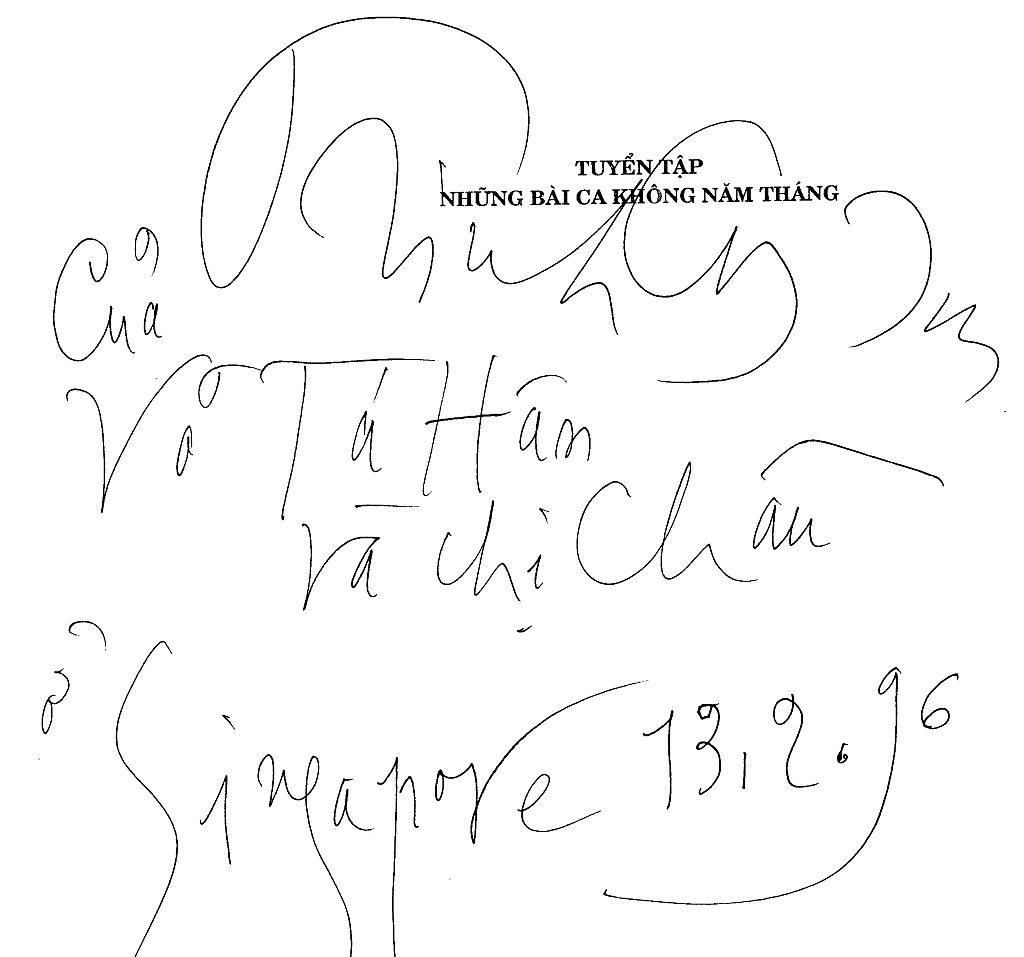 TUYỂN TẬP
NHỮNG BÀI CA KHÔNG NĂM THÁNG
Của
Võ Tá Hân
và chị Châu
ở Singapore 13.2.96